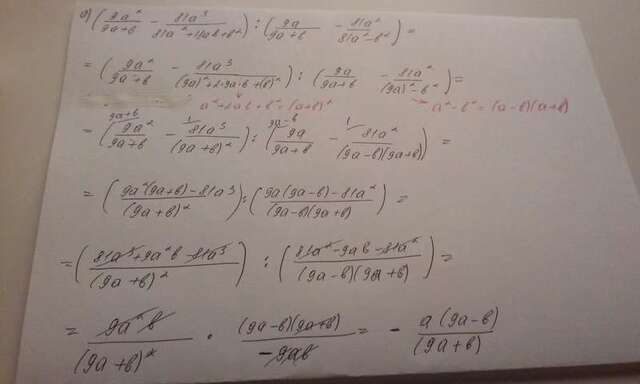 а) (9a²/(9a+b) − 81a³/(81a²+18ab+b²)) : (9a/(9a+b) − 81a²/(81a²−b²)) =
= (9a²/(9a+b) − 81a³/((9a)²+2·9a·b+(b)²)) : (9a/(9a+b) − 81a²/((9a)²−b²)) =
a²+2ab+b²=(a+b)² a²−b²=(a−b)(a+b)
= (9a+b\ 9a²/(9a+b) − 1\ 81a³/(9a+b)²) : (9a−b\ 9a/(9a+b) − 1\ 81a²/((9a−b)(9a+b))) =
= ((9a²(9a+b)−81a³)/(9a+b)²) : ((9a(9a−b)−81a²)/((9a−b)(9a+b))) =
= ((81a³+9a²b−81a³)/(9a+b)²) : ((81a²−9ab−81a²)/((9a−b)(9a+b))) =
= 9a²b/(9a+b)² · (9a−b)(9a+b)/(−9ab) = − a(9a−b)/(9a+b)